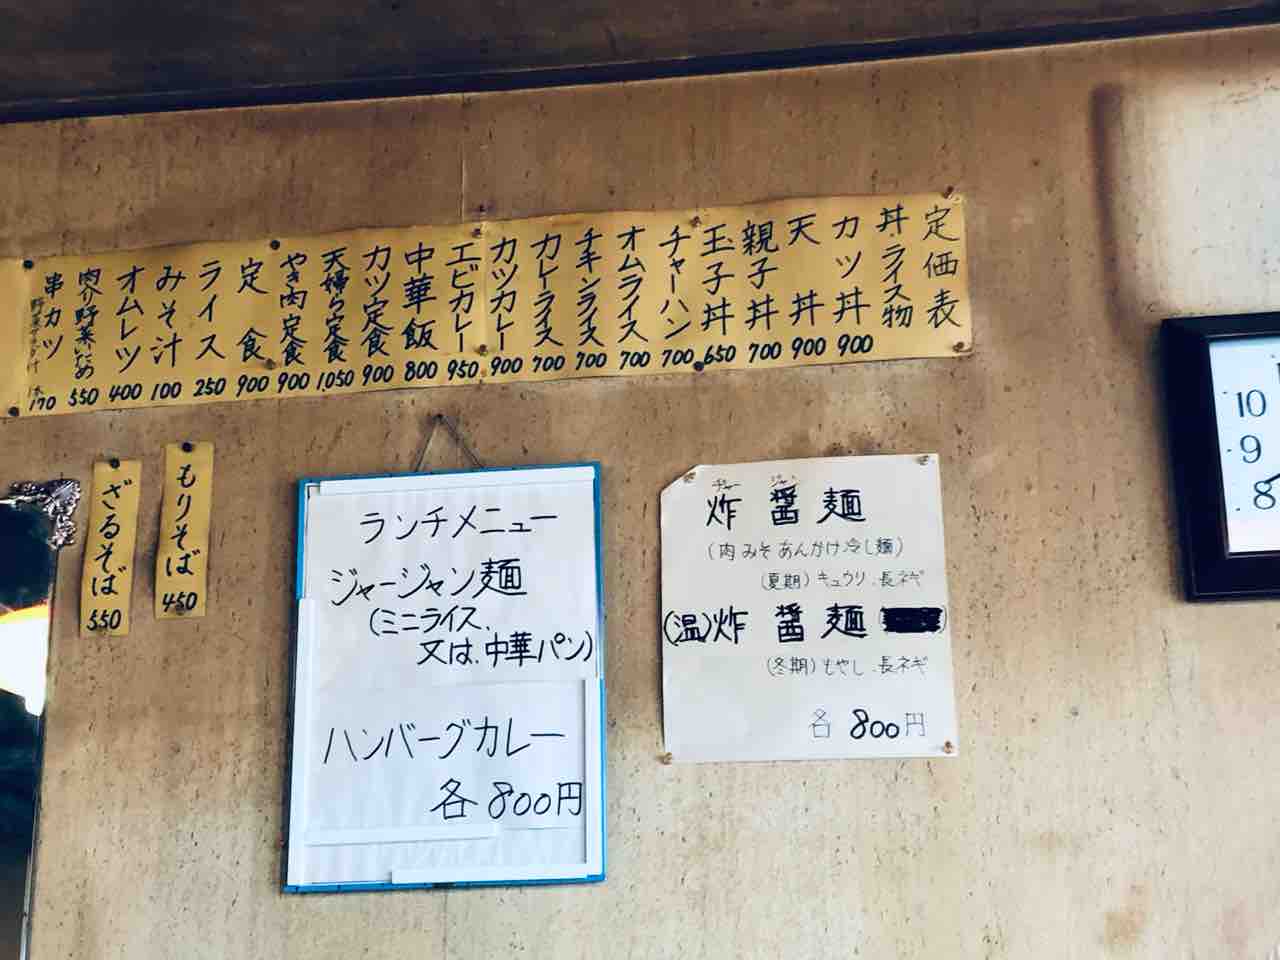 定価表
丼ライス物
カツ丼 900
天丼 900
親子丼 700
玉子丼 650
チャーハン 700
オムライス 700
チキンライス 700
カレーライス 700
カツカレー 900
エビカレー 950
中華飯 800
カツ定食 900
天婦ら定食 1,050
やき肉定食 900
定食 900
ライス 250
みそ汁 100
オムレツ 400
肉入り野菜いため 550
串カツ 170
もりそば 450
ざるそば 550
ランチメニュー
ジャージャン麺
(ミニライス、
又は、中華パン)
ハンバーグカレー
各 800円
チャー ジャン
炸醤麺
(肉みそあんかけ冷し麺)
(夏期) キュウリ、長ネギ
(温)炸醤麺
(冬期) もやし、長ネギ
各 800円
10
9
8